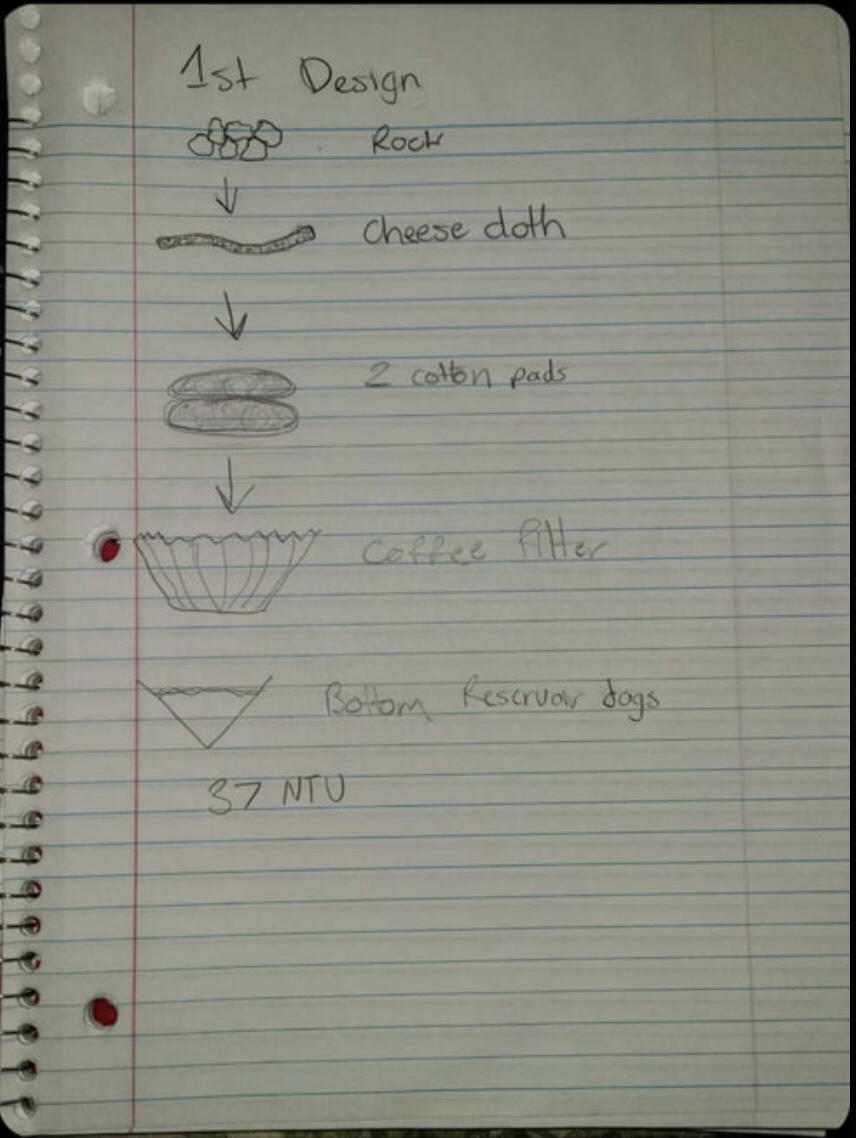 1st Design
Rock
Cheese cloth
2 cotton pads
Coffee filter
Bottom Reservoir dogs
37 NTU